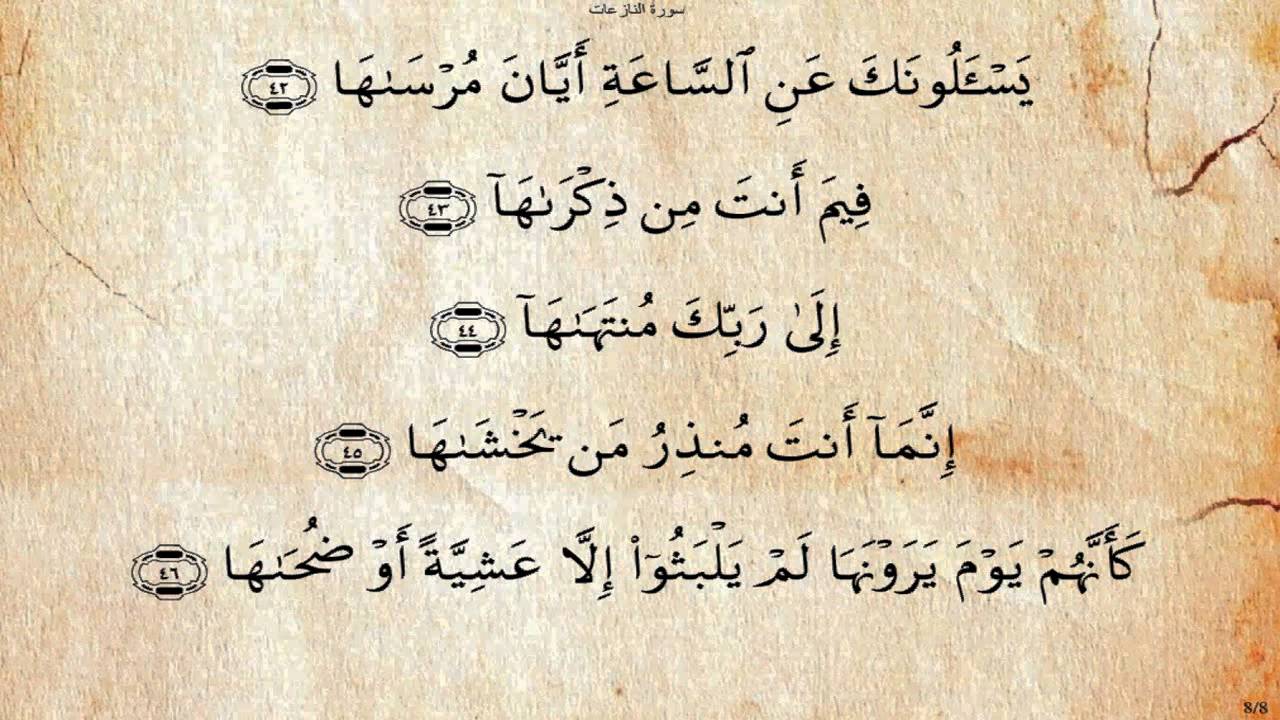 سورة النازعات
يَسْـَٔلُونَكَ عَنِ ٱلسَّاعَةِ أَيَّانَ مُرْسَىٰهَا ٤٢
فِيمَ أَنتَ مِن ذِكْرَىٰهَآ ٤٣
إِلَىٰ رَبِّكَ مُنتَهَىٰهَآ ٤٤
إِنَّمَآ أَنتَ مُنذِرُ مَن يَخْشَىٰهَا ٤٥
كَأَنَّهُمْ يَوْمَ يَرَوْنَهَا لَمْ يَلْبَثُوٓا۟ إِلَّا عَشِيَّةً أَوْ ضُحَىٰهَا ٤٦
8/8